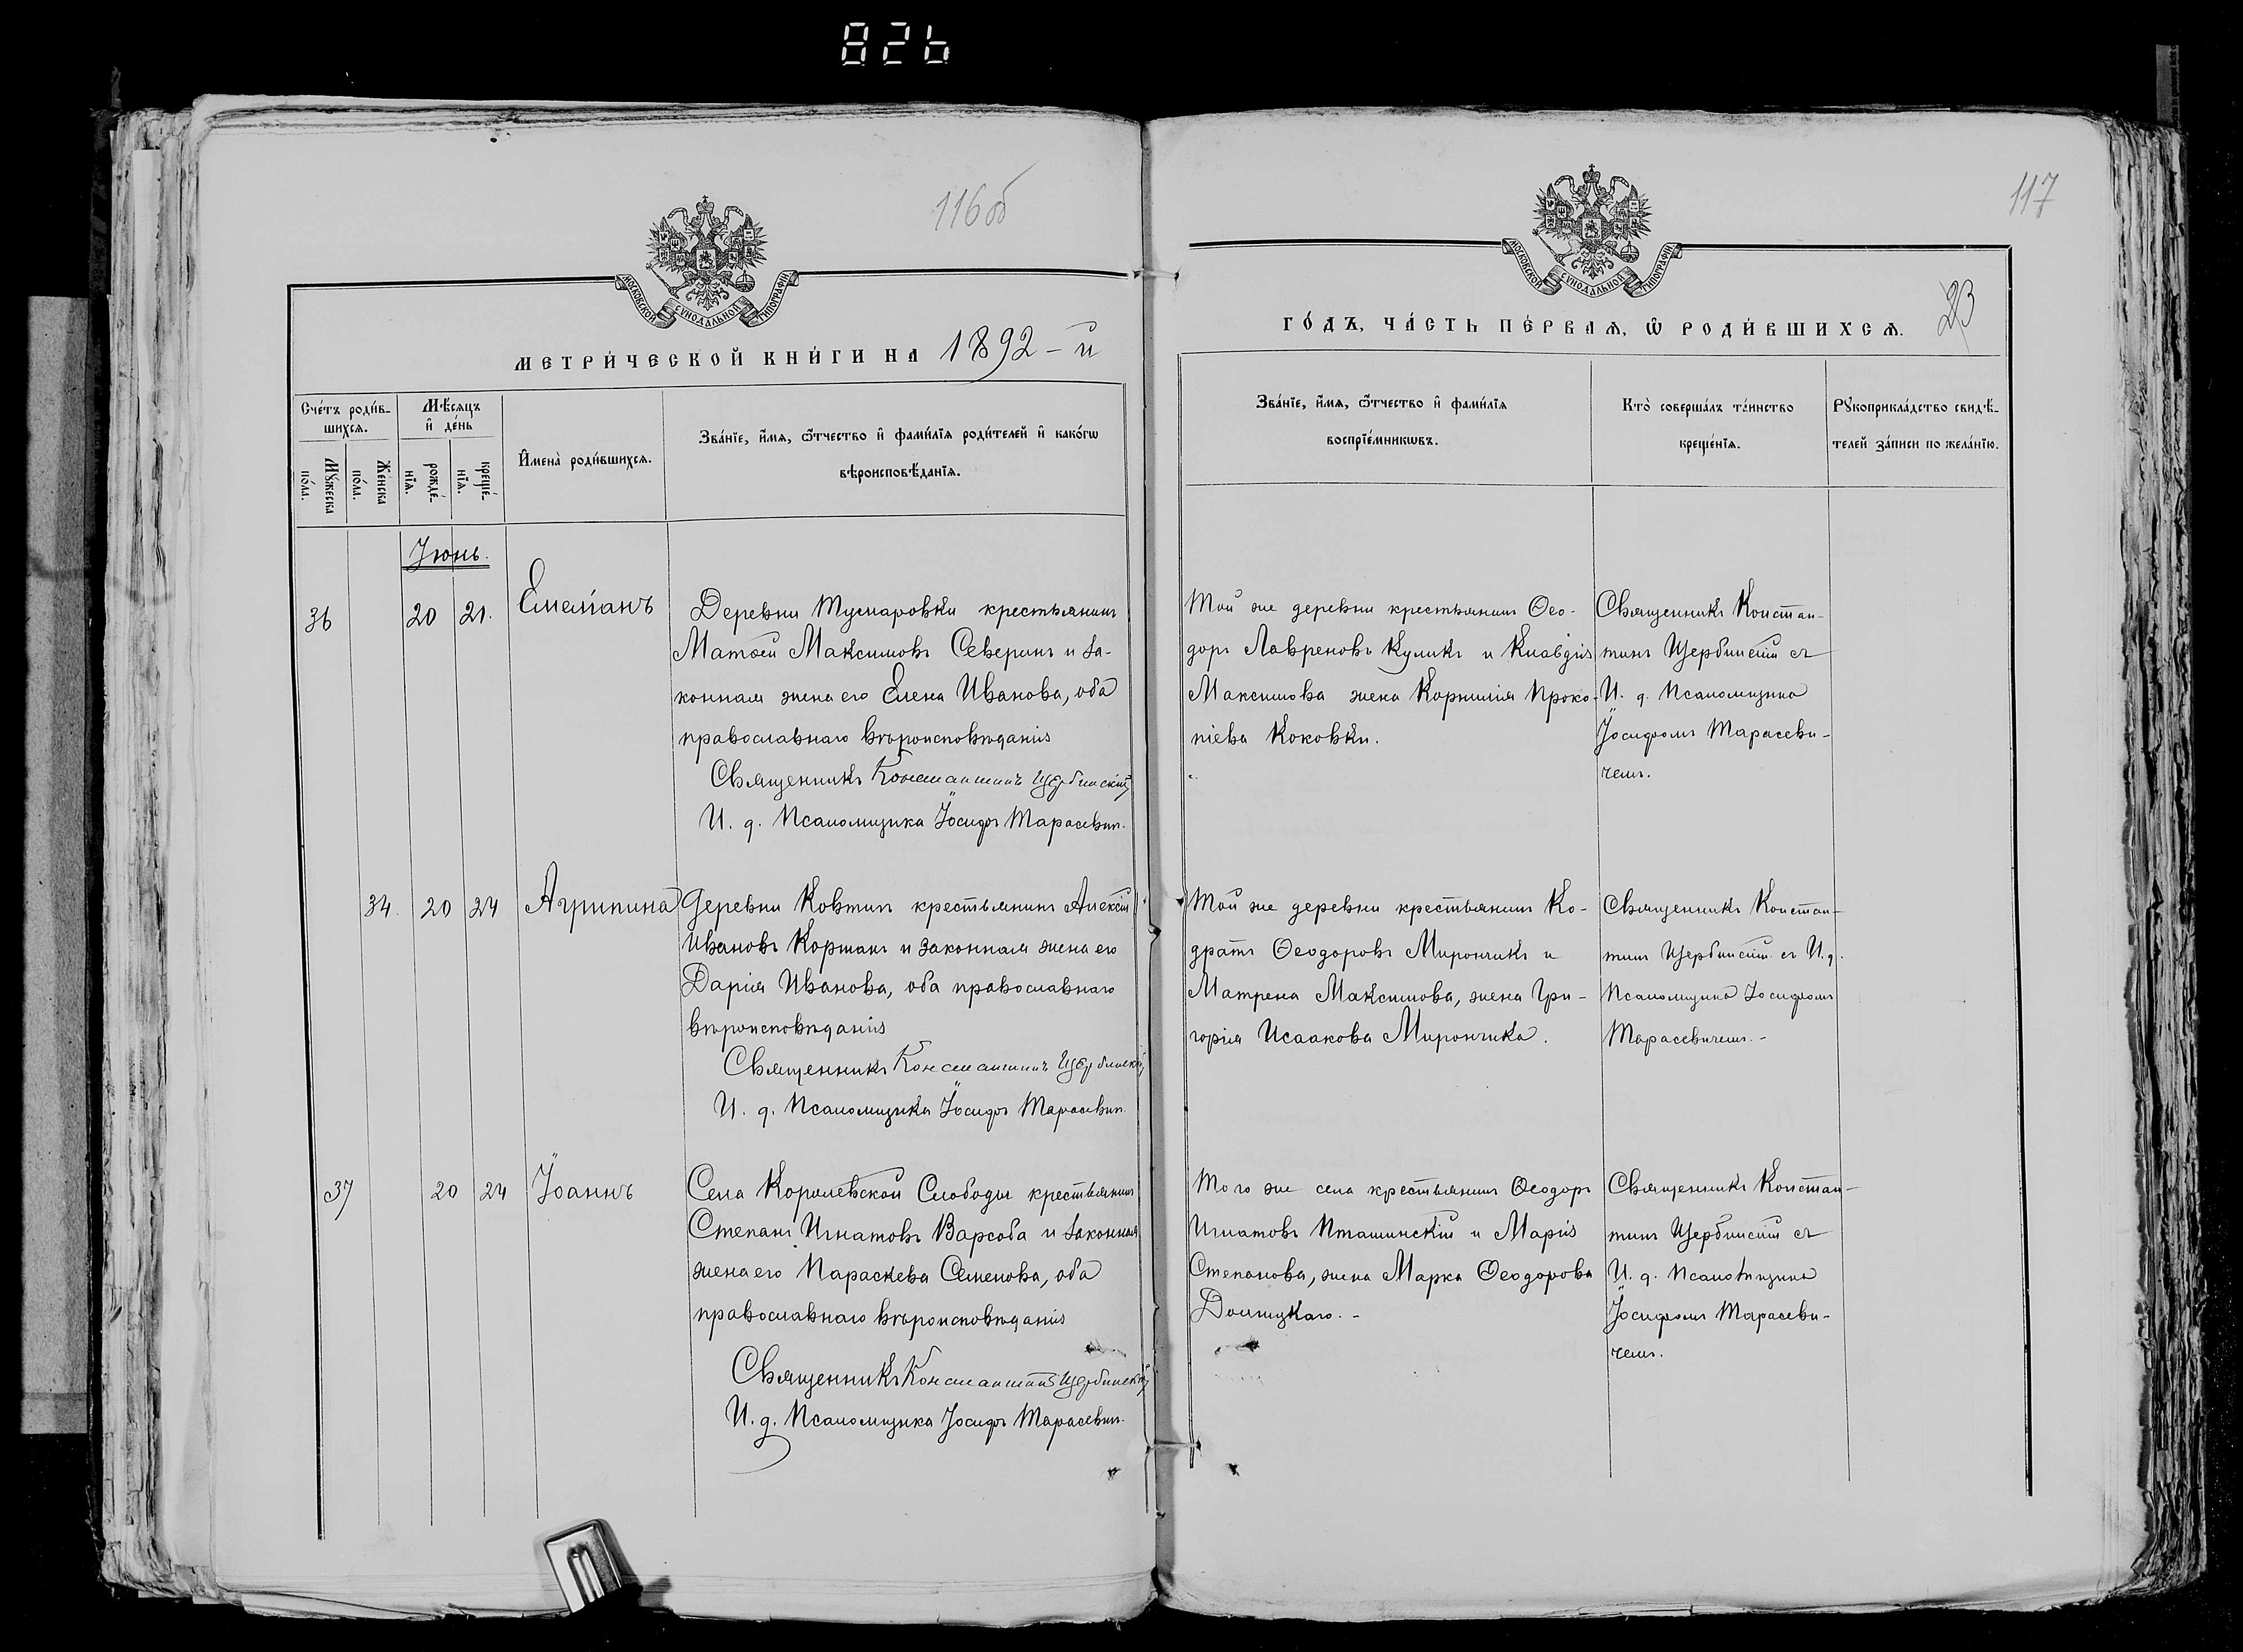 826
116об
МОСКОВСКОЙ СѴНОДАЛЬНОЙ ТИПОГРАФІИ
МЕТРИ́ЧЕСКОЙ КНИ́ГИ НА 1892-й
Сче́тъ роди́в-
шихсѧ.
Мѣ́сѧцъ
и҆ де́нь
И҆мена̀ роди́вшихсѧ.
Зва́нїе, и҆́мѧ, ѻ҆́тчество и҆ фами́лїѧ роди́телей и҆ како́гѡ
вѣроисповѣ́данїѧ.
Мꙋ́жеска
по́ла.
Же́нска
по́ла.
рожде́-
нїѧ.
креще́-
нїѧ.
Іюнь.
36 20 21. Емеліанъ
Деревни Тумаровки крестьянинъ
Матѳей Максимовъ Северинъ и за-
конная жена его Елена Иванова, оба
православнаго вѣроисповѣданія
Священникъ Константинъ Щербинскій
И. д. Псаломщика Іосифъ Тарасевич.
34. 20 24 Агрипина
Деревни Ковтип крестьянинъ Алексій
Ивановъ Коржакъ и законная жена его
Дарія Иванова, оба православнаго
вѣроисповѣданія
Священникъ Константинъ Щербинскій
И. д. Псаломщика Іосифъ Тарасевич.
37 20 24 Іоаннъ
Села Королевской Слободы крестьянинъ
Степанъ Игнатовъ Варсоба и законная
жена его Параскева Семенова, оба
православнаго вѣроисповѣданія
Священникъ Константинъ Щербинскій
И. д. Псаломщика Іосифъ Тарасевич.
117
МОСКОВСКОЙ СѴНОДАЛЬНОЙ ТИПОГРАФІИ
23
ГО́ДЪ, ЧА́СТЬ ПЕ́РВАѦ, Ѡ҆ РОДИ́ВШИХСѦ.
Зва́нїе, и҆́мѧ, ѻ҆́тчество и҆ фами́лїѧ
воспрїе́мникѡвъ.
Кто̀ соверша́лъ та́инство
креще́нїѧ.
Рꙋкоприкла́дство свидѣ́-
телей за́писи по жела́нїю.
Той же деревни крестьянинъ Ѳео-
доръ Лавреновъ Куликъ и Клавдія
Максимова жена Корнилія Проко-
піева Коковки.
Священникъ Констан-
тинъ Щербинскій съ
И. д. Псаломщика
Іосифомъ Тарасеви-
чемъ.
Той же деревни крестьянинъ Ко-
дратъ Ѳеодоровъ Мирончикъ и
Матрена Максимова, жена Гри-
горія Исаакова Мирончика.
Священникъ Констан-
тинъ Щербинскій съ И. д.
Псаломщика Іосифомъ
Тарасевичемъ.-
Того же села крестьянинъ Ѳеодоръ
Игнатовъ Пташинскій и Марія
Степанова, жена Марка Ѳеодорова
Долицкаго.-
Священникъ Констан-
тинъ Щербинскій съ
И. д. Псаломщика
Іосифомъ Тарасеви-
чемъ.